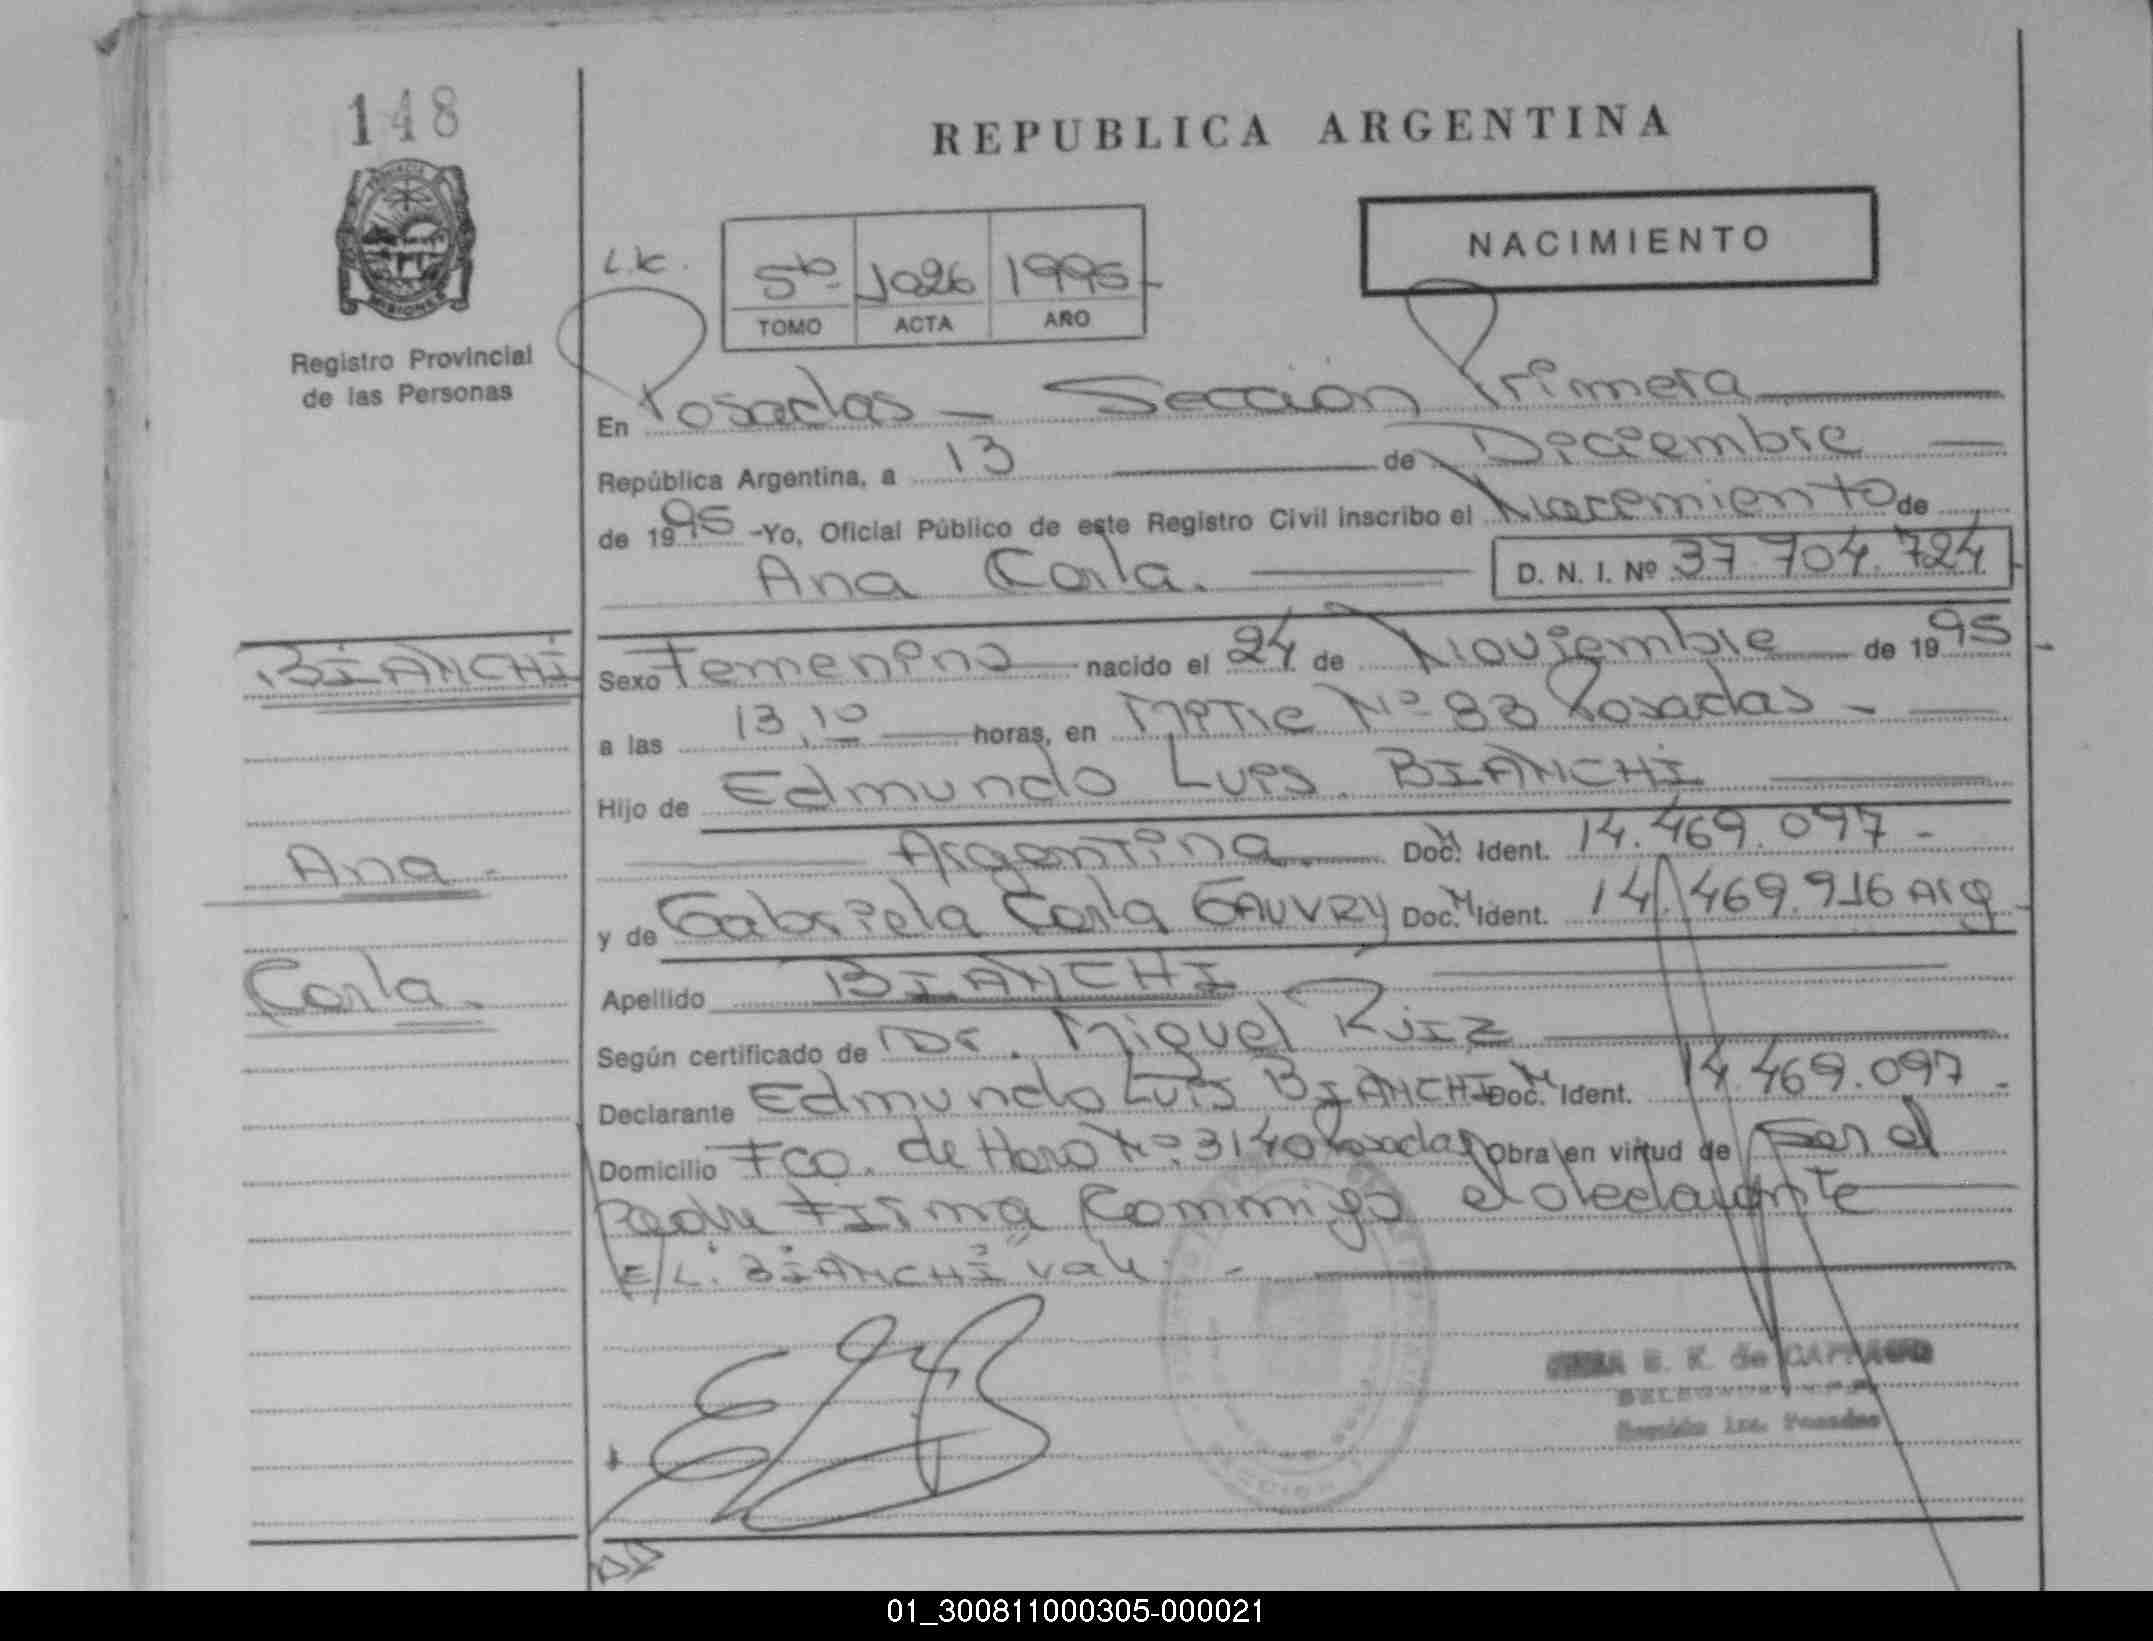 148
REPUBLICA ARGENTINA
NACIMIENTO
L.K.
5b 1026 1995
TOMO ACTA AÑO
Registro Provincial
de las Personas
En Posadas - Sección Primera
República Argentina, a 13 de Diciembre
de 1995 -Yo, Oficial Público de este Registro Civil inscribo el Nacimiento de
Ana Carla. D. N. I. Nº 37.704.724
BIANCHI
Sexo Femenino nacido el 24 de Noviembre de 1995
a las 13,10 horas, en Mitre Nº 83 Posadas -
Hijo de Edmundo Luis BIANCHI
Argentina Doc. M Ident. 14.469.097 -
Ana -
y de Gabriela Carla GAUVRY Doc. M Ident. 14.469.916 Arg
Carla.
Apellido BIANCHI
Según certificado de Dr. Miguel Ruiz
Declarante Edmundo Luis BIANCHI Doc. M Ident. 14.469.097 -
Domicilio Fco. de Haro Nº 3140 Posadas Obra en virtud de ser el
padre Firma Conmigo el declarante
E/L. BIANCHI vale. -
E. K. de
Sección 1ra. Posadas
01_300811000305-000021